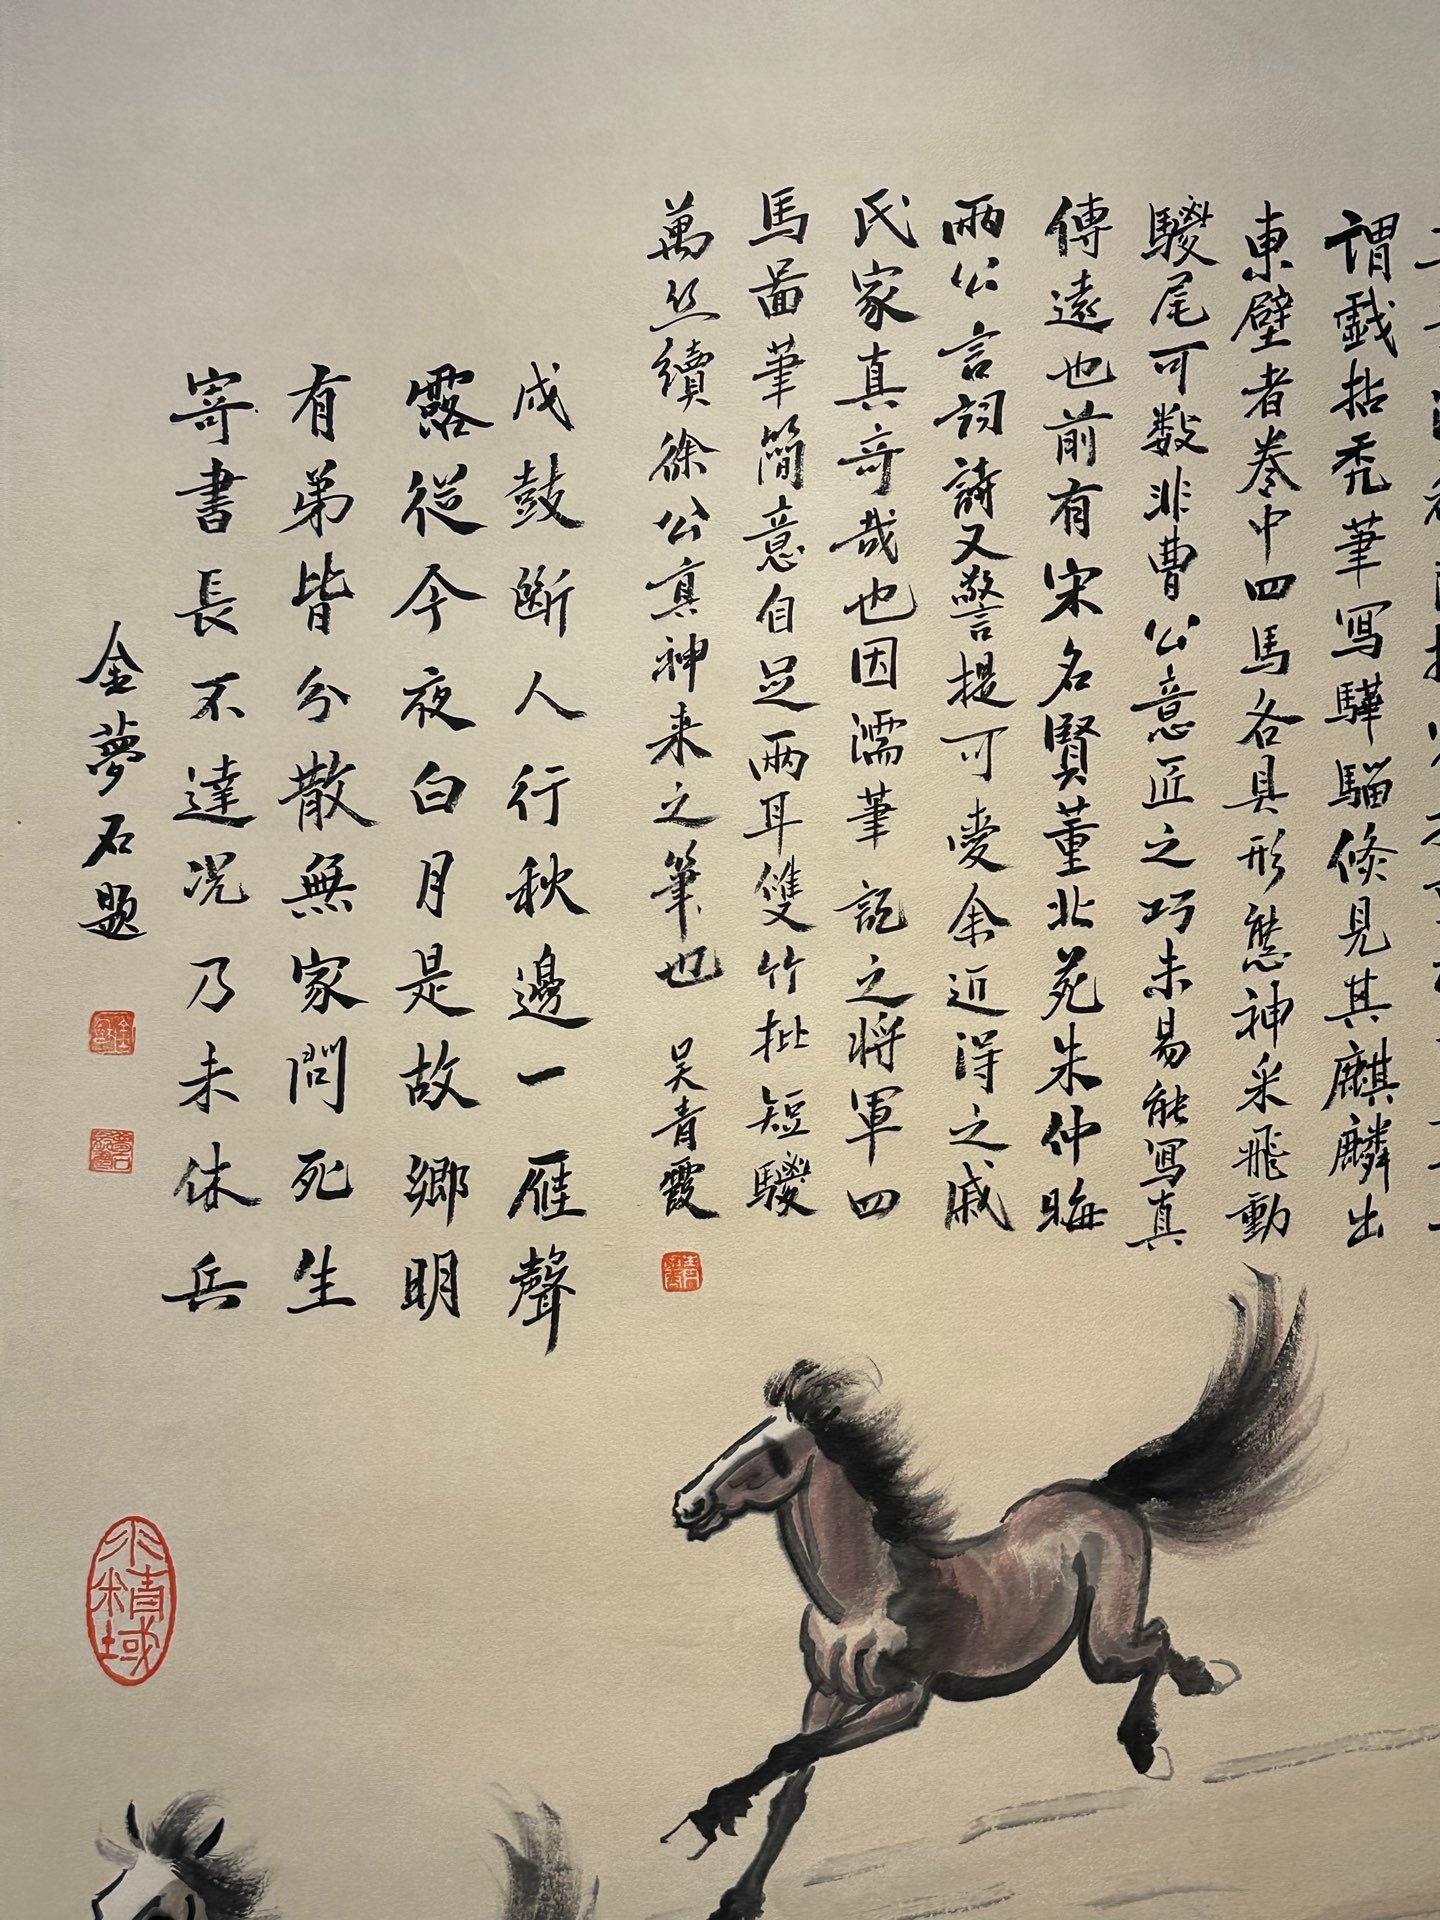 謂戲拈禿筆寫驊騮倏見其麒麟出
東壁者卷中四馬各具形態神采飛動
騣尾可數非曹公意匠之巧未易能寫真
傳遠也前有宋名賢董北苑朱仲晦
兩公言詞詩又警提可愛余近得之戚
氏家真奇哉也因濡筆記之將軍四
馬啚筆簡意自足兩耳雙竹批短騣
萬丝續徐公真神来之筆也 吴青霞
戍鼓斷人行秋邊一雁聲
露從今夜白月是故鄉明
有弟皆分散無家問死生
寄書長不達況乃未休兵
金夢石題